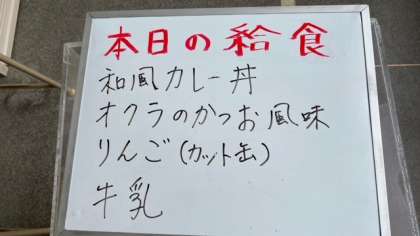 本日の給食
和風カレー丼
オクラのかつお風味
りんご(カット缶)
牛乳